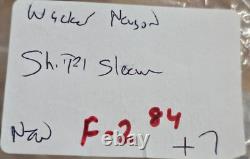 Wacker Neuson
Shift Sleeve
New F-2 84 +7
ebay